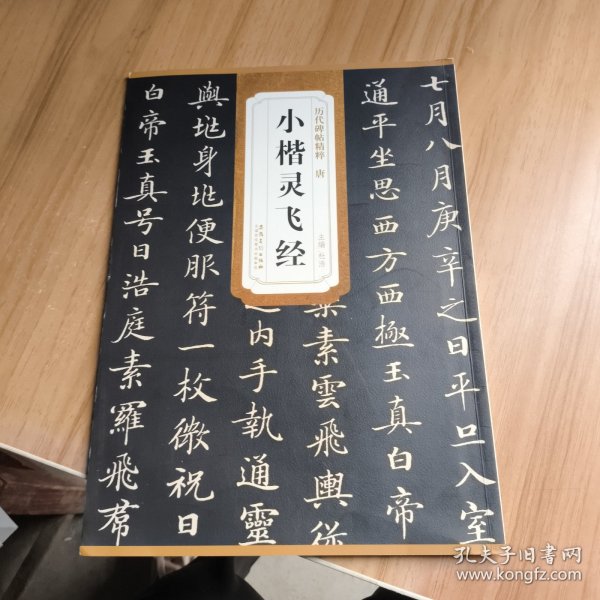 历代碑帖精粹 唐
小楷灵飞经
主编 杜浩
七月八月庚辛之日平旦入室
通平坐思西方西極玉真白帝
素雲飛輿從
内手執通靈
與地身地便服符一枚微祝曰
白帝玉真号曰浩庭素羅飛帬
孔夫子旧书网
www.kongfz.com